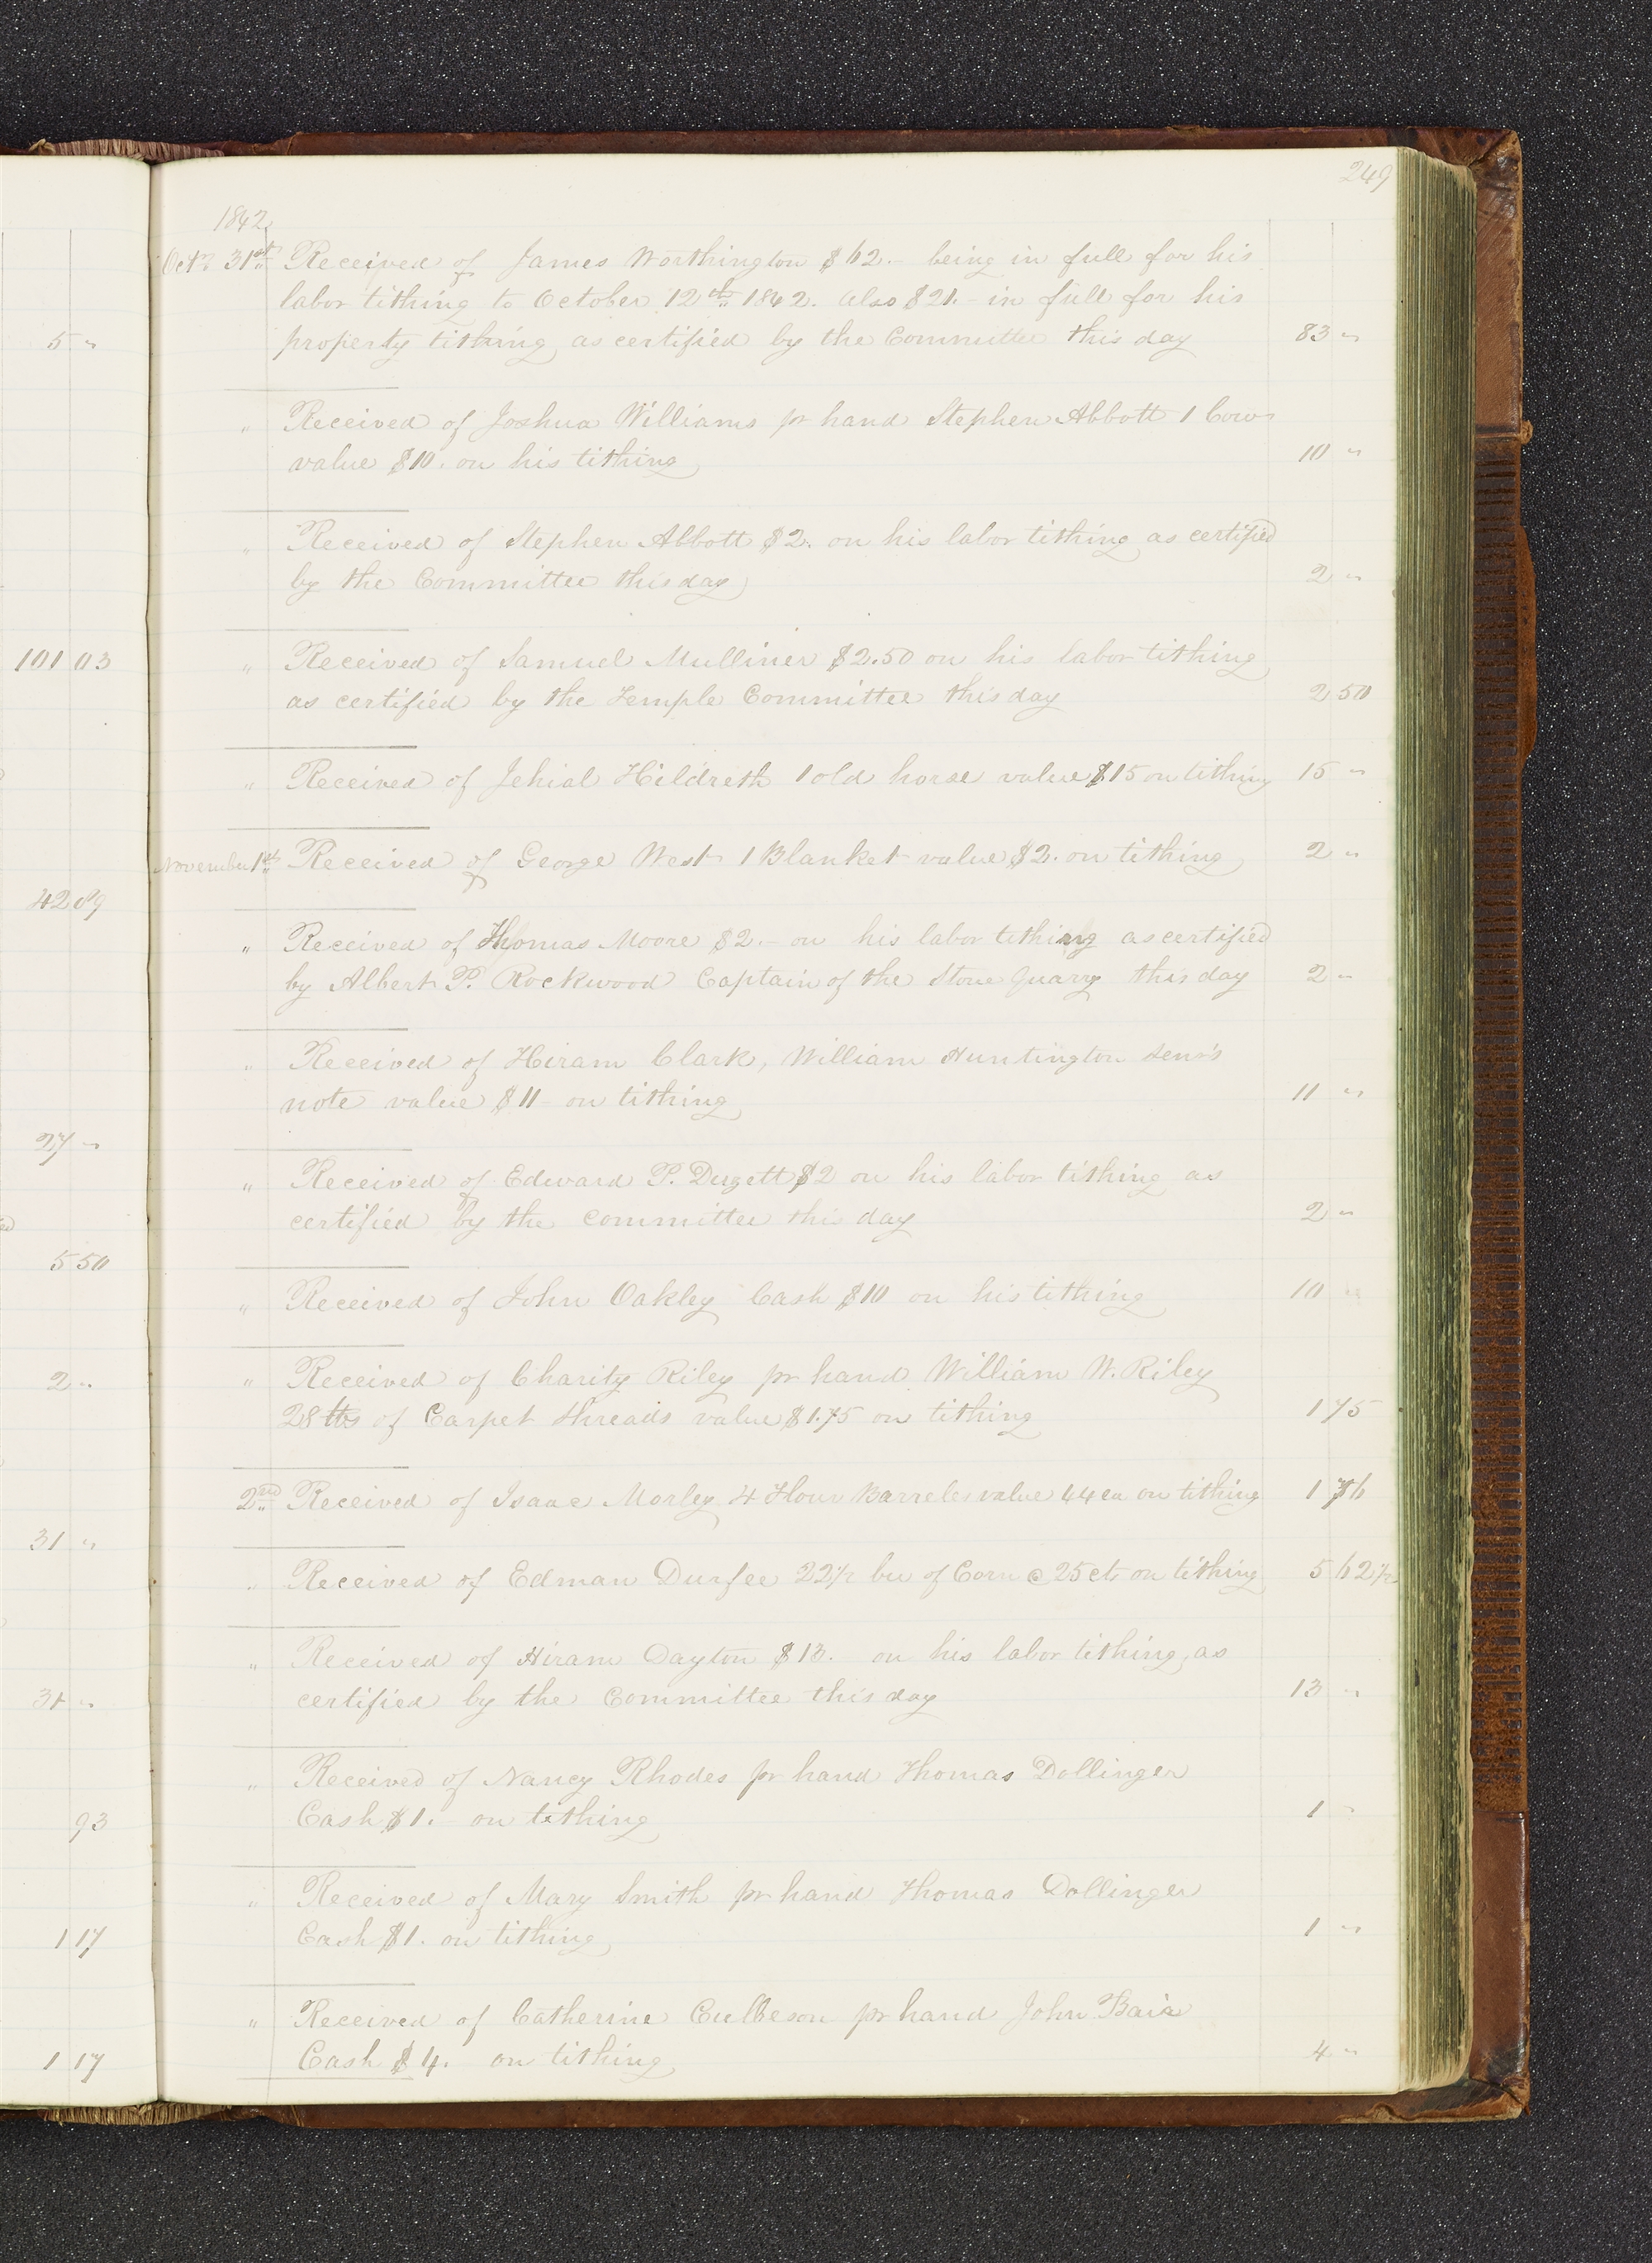 249
1842
Octr 31st Received of James Worthington $62.– being in full for his
labor tithing to October 12th 1842. also $21.– in full for his
property tithing as certified by the Committee this day 83 "
" Received of Joshua Williams pr hand Stephen Abbott 1 Cow
value $10. on his tithing 10 "
" Received of Stephen Abbott $2. on his labor tithing as certified
by the Committee this day 2 "
" Received of Samuel Mulliner $2.50 on his labor tithing
as certified by the Temple Committee this day 2 50
" Received of Jehial Hildreth 1 old horse value $15 on tithing 15 "
November 1st Received of George West 1 Blanket value $2. on tithing 2 "
" Received of Thomas Moore $2.– on his labor tithing as certified
by Albert P. Rockwood Captain of the Stone Quarry this day 2 "
" Received of Hiram Clark, William Huntington Senr's
note value $11– on tithing 11 "
" Received of Edward P. Duzett $2 on his labor tithing as
certified by the committee this day 2 "
" Received of John Oakley Cash $10 on his tithing 10 "
" Received of Charity Riley pr hand William W. Riley
28 lbs of Carpet threads value $1.75 on tithing 1 75
2nd Received of Isaac Morley 4 Flour Barreles value 44 ea on tithing 1 76
" Received of Edman Durfee 22 1/2 bu of Corn @ 25 cts on tithing 5 62 1/2
" Received of Hiram Dayton $13. on his labor tithing, as
certified by the Committee this day 13 "
" Received of Nancy Rhodes pr hand Thomas Dollinger
Cash $1. on tithing 1 "
" Received of Mary Smith pr hand Thomas Dollinger
Cash $1. on tithing 1 "
" Received of Catherine Culbeson pr hand John Bair
Cash $4. on tithing 4 "
5 "
101 03
42 89
27 "
5 50
2 "
31 "
31 "
93
1 17
1 17